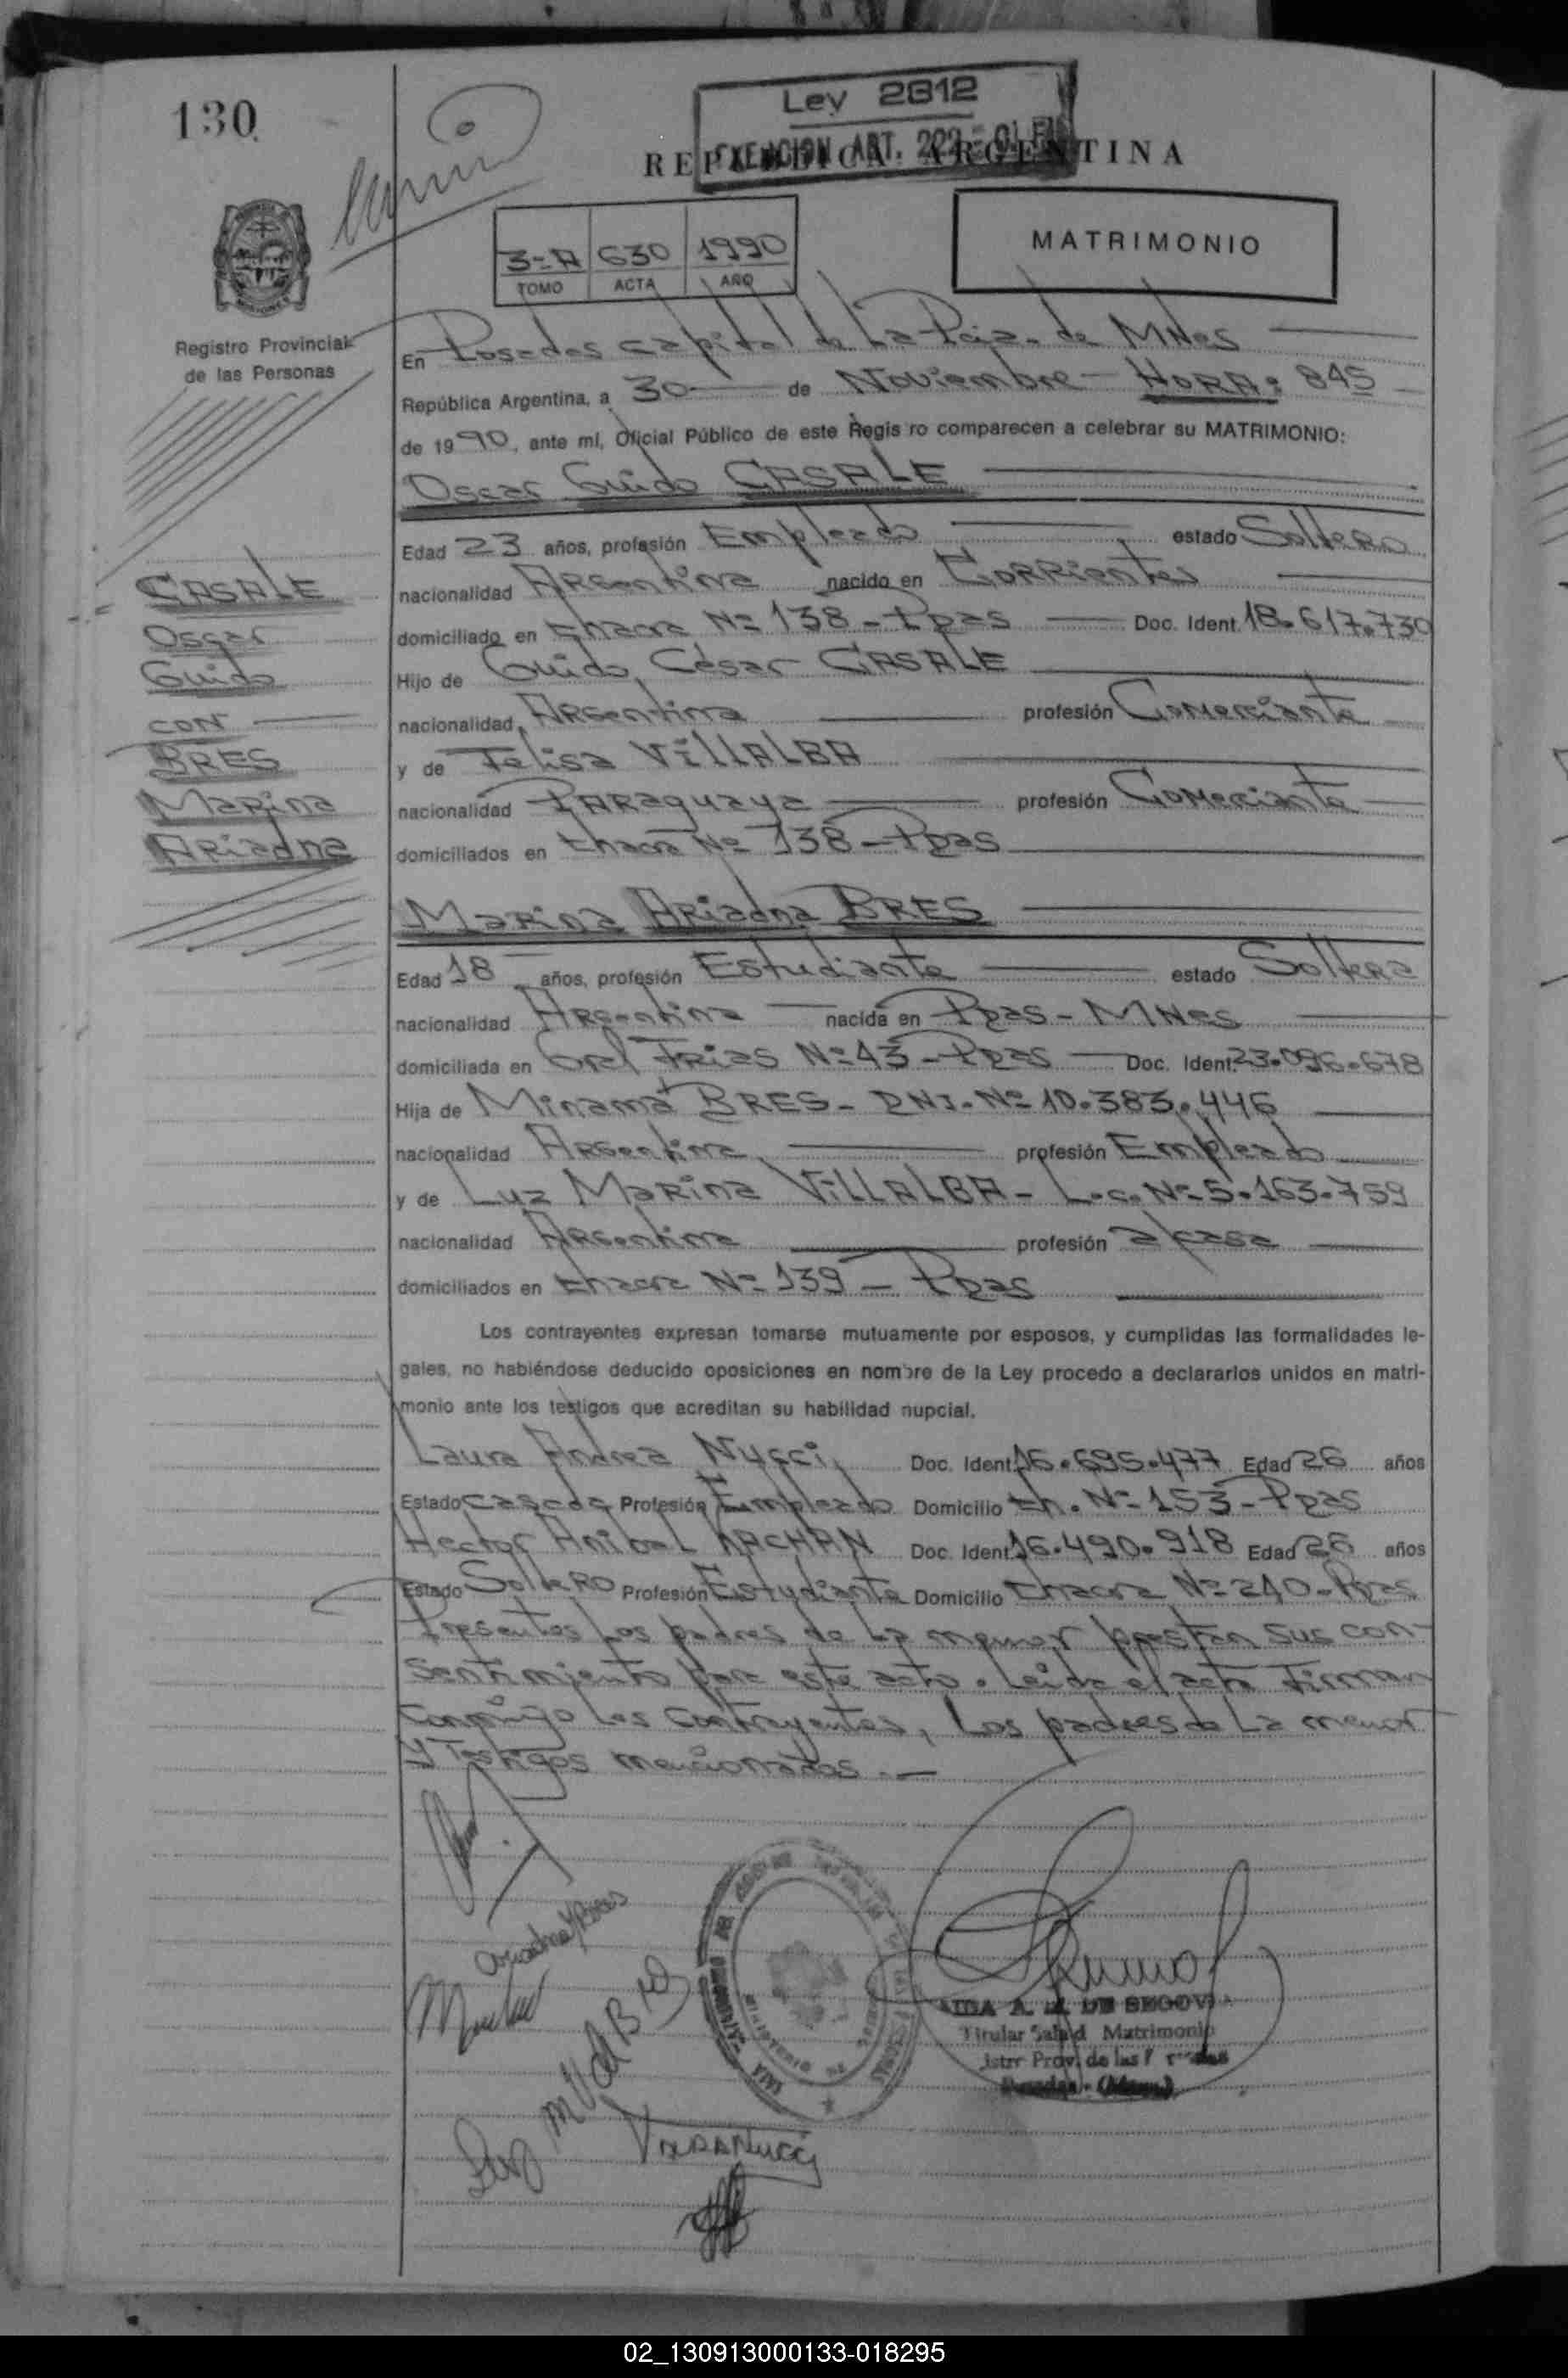 130
Ley 2812
EXENCION ART. 202
REPUBLICA ARGENTINA
MATRIMONIO
3-A 630 1990
TOMO ACTA AÑO
Registro Provincial
de las Personas
En Posadas capital de La Pcia. de MNes
República Argentina, a 30 de Noviembre - HORA: 845
de 1990, ante mí, Oficial Público de este Regis ro comparecen a celebrar su MATRIMONIO:
Oscar Guido CASALE
Edad 23 años, profesión Empleado estado Soltero
nacionalidad Argentina nacido en Corrientes
domiciliado en Chacra Nº 138 - Ppas Doc. Ident. 18.617.730
Hijo de Guido César CASALE
nacionalidad Argentina profesión Comerciante
y de Felisa VILLALBA
nacionalidad Paraguaya profesión Comerciante
domiciliados en Chacra Nº 138 - Ppas
CASALE
Oscar
Guido
con
BRES
Marina
Ariadna
Marina Ariadna BRES
Edad 18 años, profesión Estudiante estado Soltera
nacionalidad Argentina nacida en Ppas - MNes
domiciliada en Gral Frias Nº 43 - Ppas Doc. Ident. 23.096.678
Hija de BRES - DNI. Nº 10.383.446
nacionalidad Argentina profesión Empleado
y de Luz Marina VILLALBA - L.C. Nº 5.163.759
nacionalidad Argentina profesión
domiciliados en Chacra Nº 139 - Ppas
Los contrayentes expresan tomarse mutuamente por esposos, y cumplidas las formalidades le-
gales, no habiéndose deducido oposiciones en nombre de la Ley procedo a declararlos unidos en matri-
monio ante los testigos que acreditan su habilidad nupcial.
Laura Andrea Nucci Doc. Ident. 16.695.477 Edad 26 años
Estado casada Profesión Empleado Domicilio Ch. Nº 153 - Ppas
Hector Anibal Doc. Ident. 16.490.918 Edad 26 años
Estado Soltero Profesión Estudiante Domicilio Chacra Nº 240 - Ppas
Presentes Los padres de La menor prestan sus con-
sentimiento para este acto. Leida el acta Firman
conmigo Los contrayentes, Los padres de La menor
y Testigos mencionados. —
DE SEGOVIA
Titular Matrimonio
Prov. de las
02_130913000133-018295